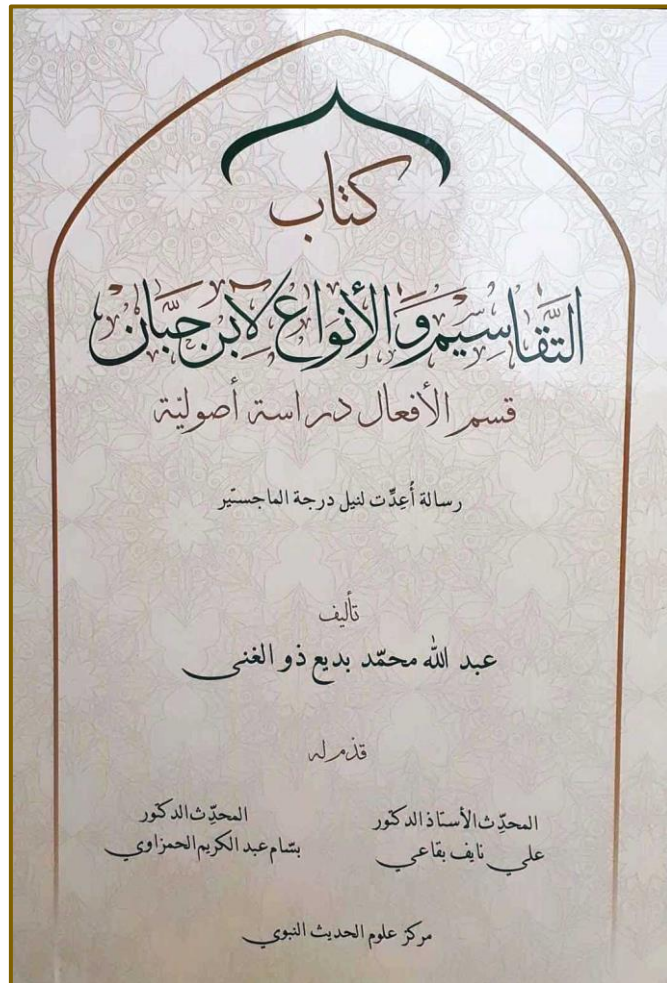 كتاب
التَّقَاسِيْم وَالأَنوَاع لابن حبَّان
قسم الأفعال دراسة أصوليّة
رسالة أُعِدَّت لنيل درجة الماجستير
تأليف
عبد الله محمّد بديع ذو الغنى
قدّم له
المحدِّث الأستاذ الدكتور
علي نايف بقاعي
المحدِّث الدكتور
بسّام عبد الكريم الحمزاوي
مركز علوم الحديث النبوي